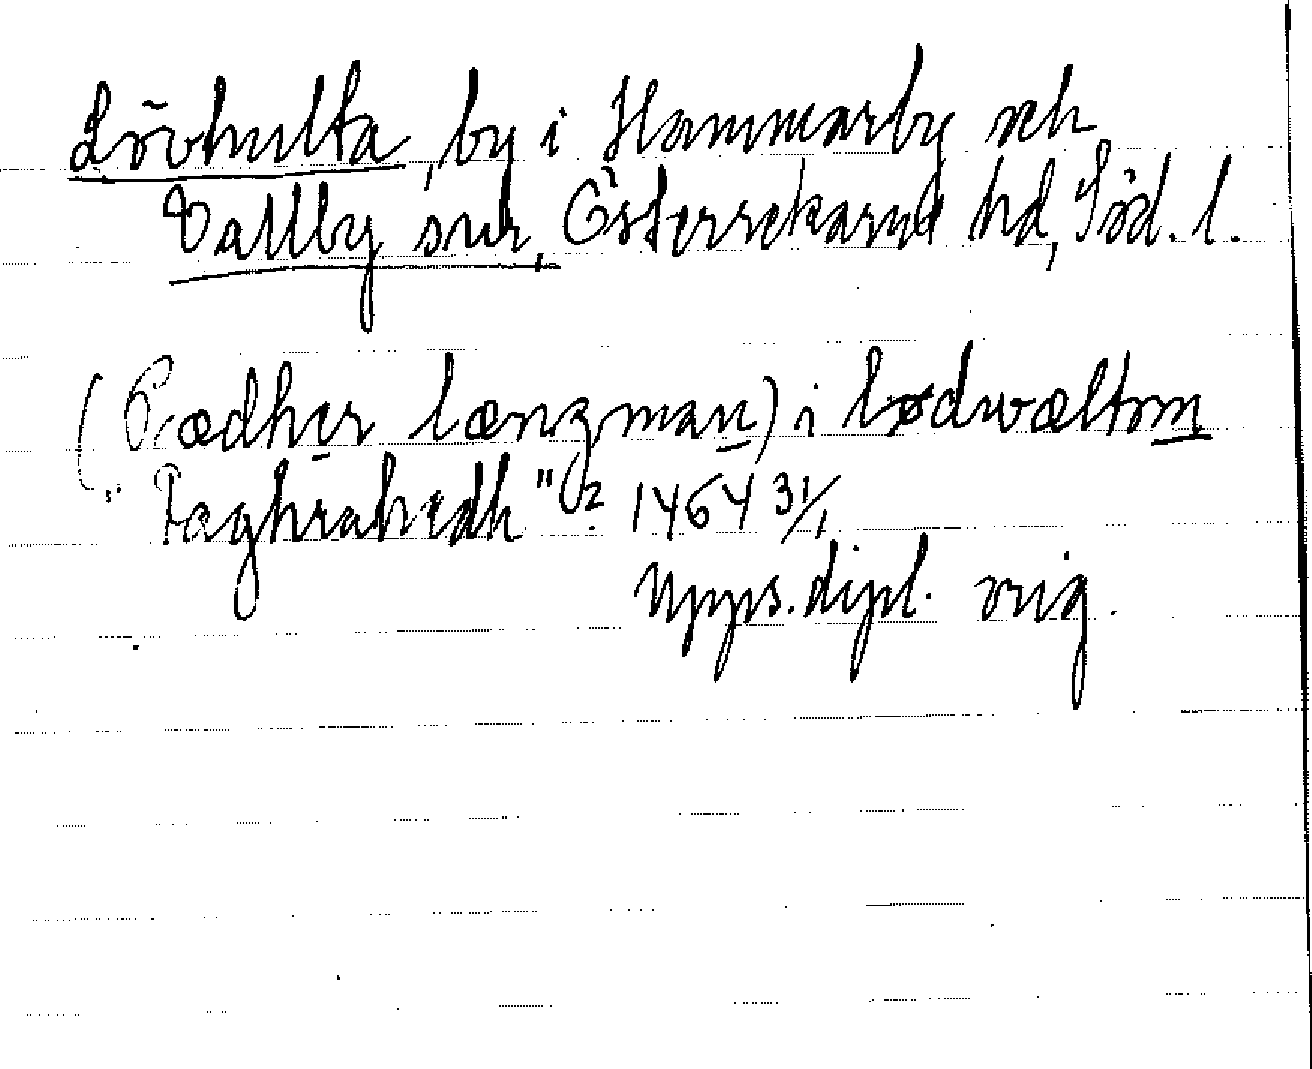 Lövhulta, by i Hammarby och
Vallby snr, Österrekarne hd, Söd. l.
(Pædher længman) i lødwæltom
"Faghrahedh" Ö2 1464 31/1
Upps. dipl. orig.